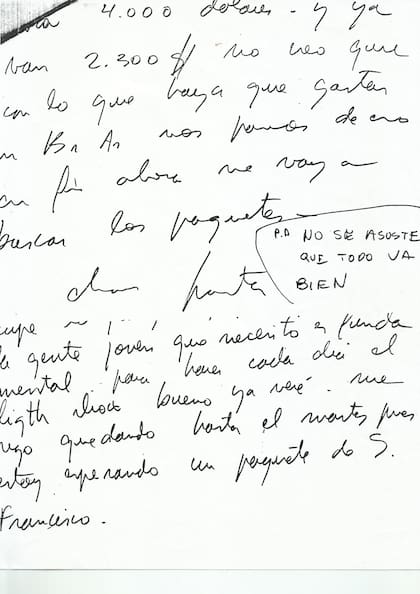 4.000 dolares - y ya
van 2.300 $ no veo que
con lo que haya que gastar
en Bs As nos vamos de eso
en fin ahora me voy a
buscar los paquetes
P.D NO SE ASUSTE
QUE TODO VA
BIEN
chau
la gente joven que necesito es funda
mental para hacer cada dia el
ligth show bueno ya veré. me
sigo quedando hasta el martes pues
estoy esperando un paquete de S.
Francisco.